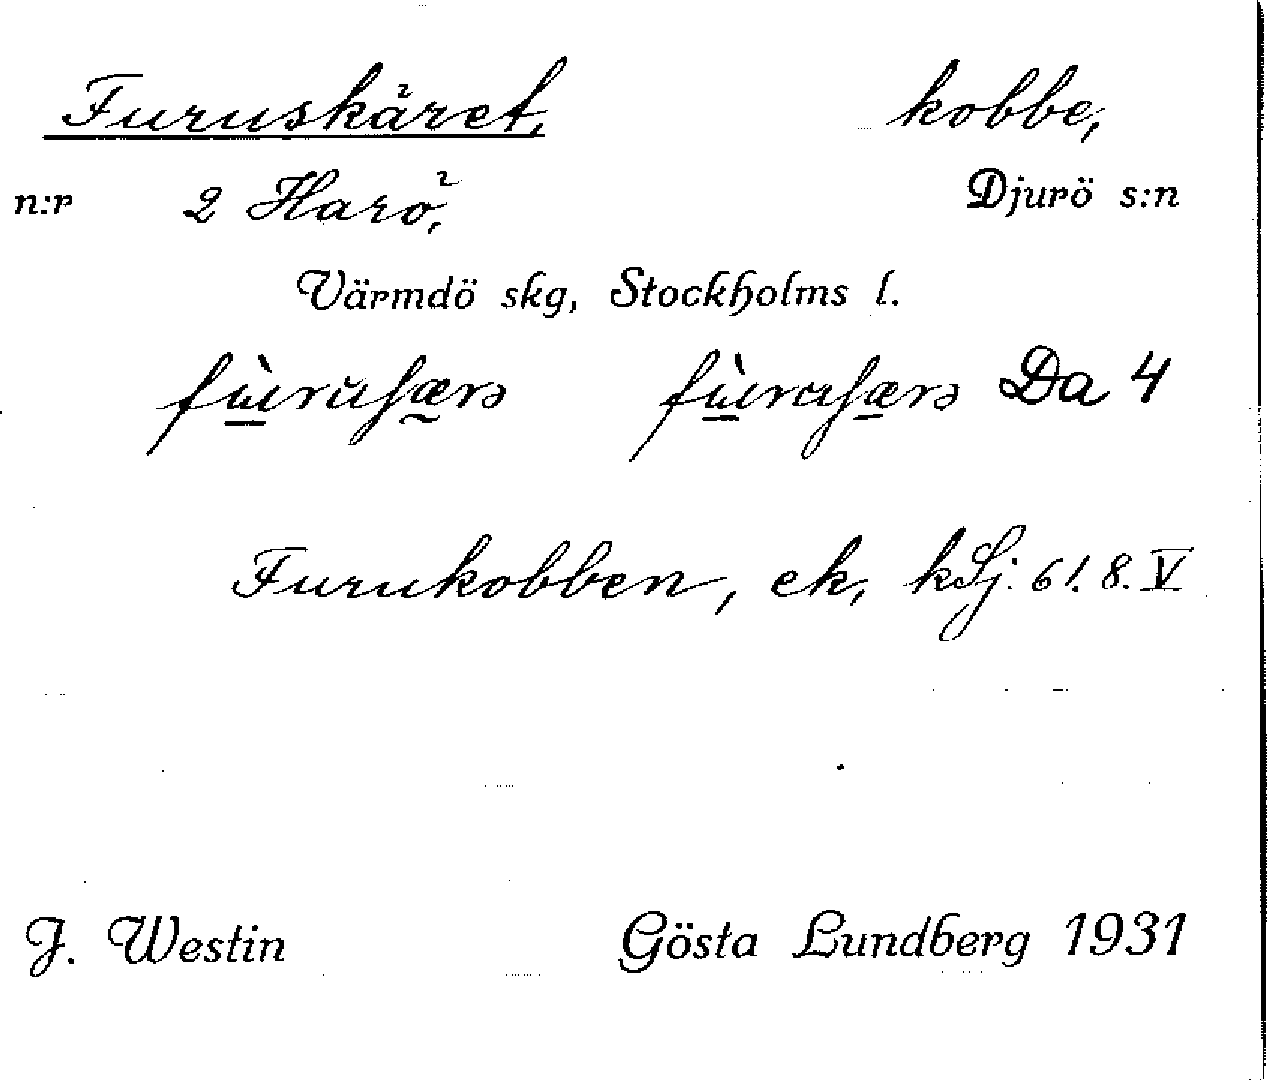 Furuskäret, kobbe,
n:r 2 Harö, Djurö s:n
Värmdö skg, Stockholms l.
Da 4
Furukobben, ek, kSj: 61. 8. V
J. Westin Gösta Lundberg 1931